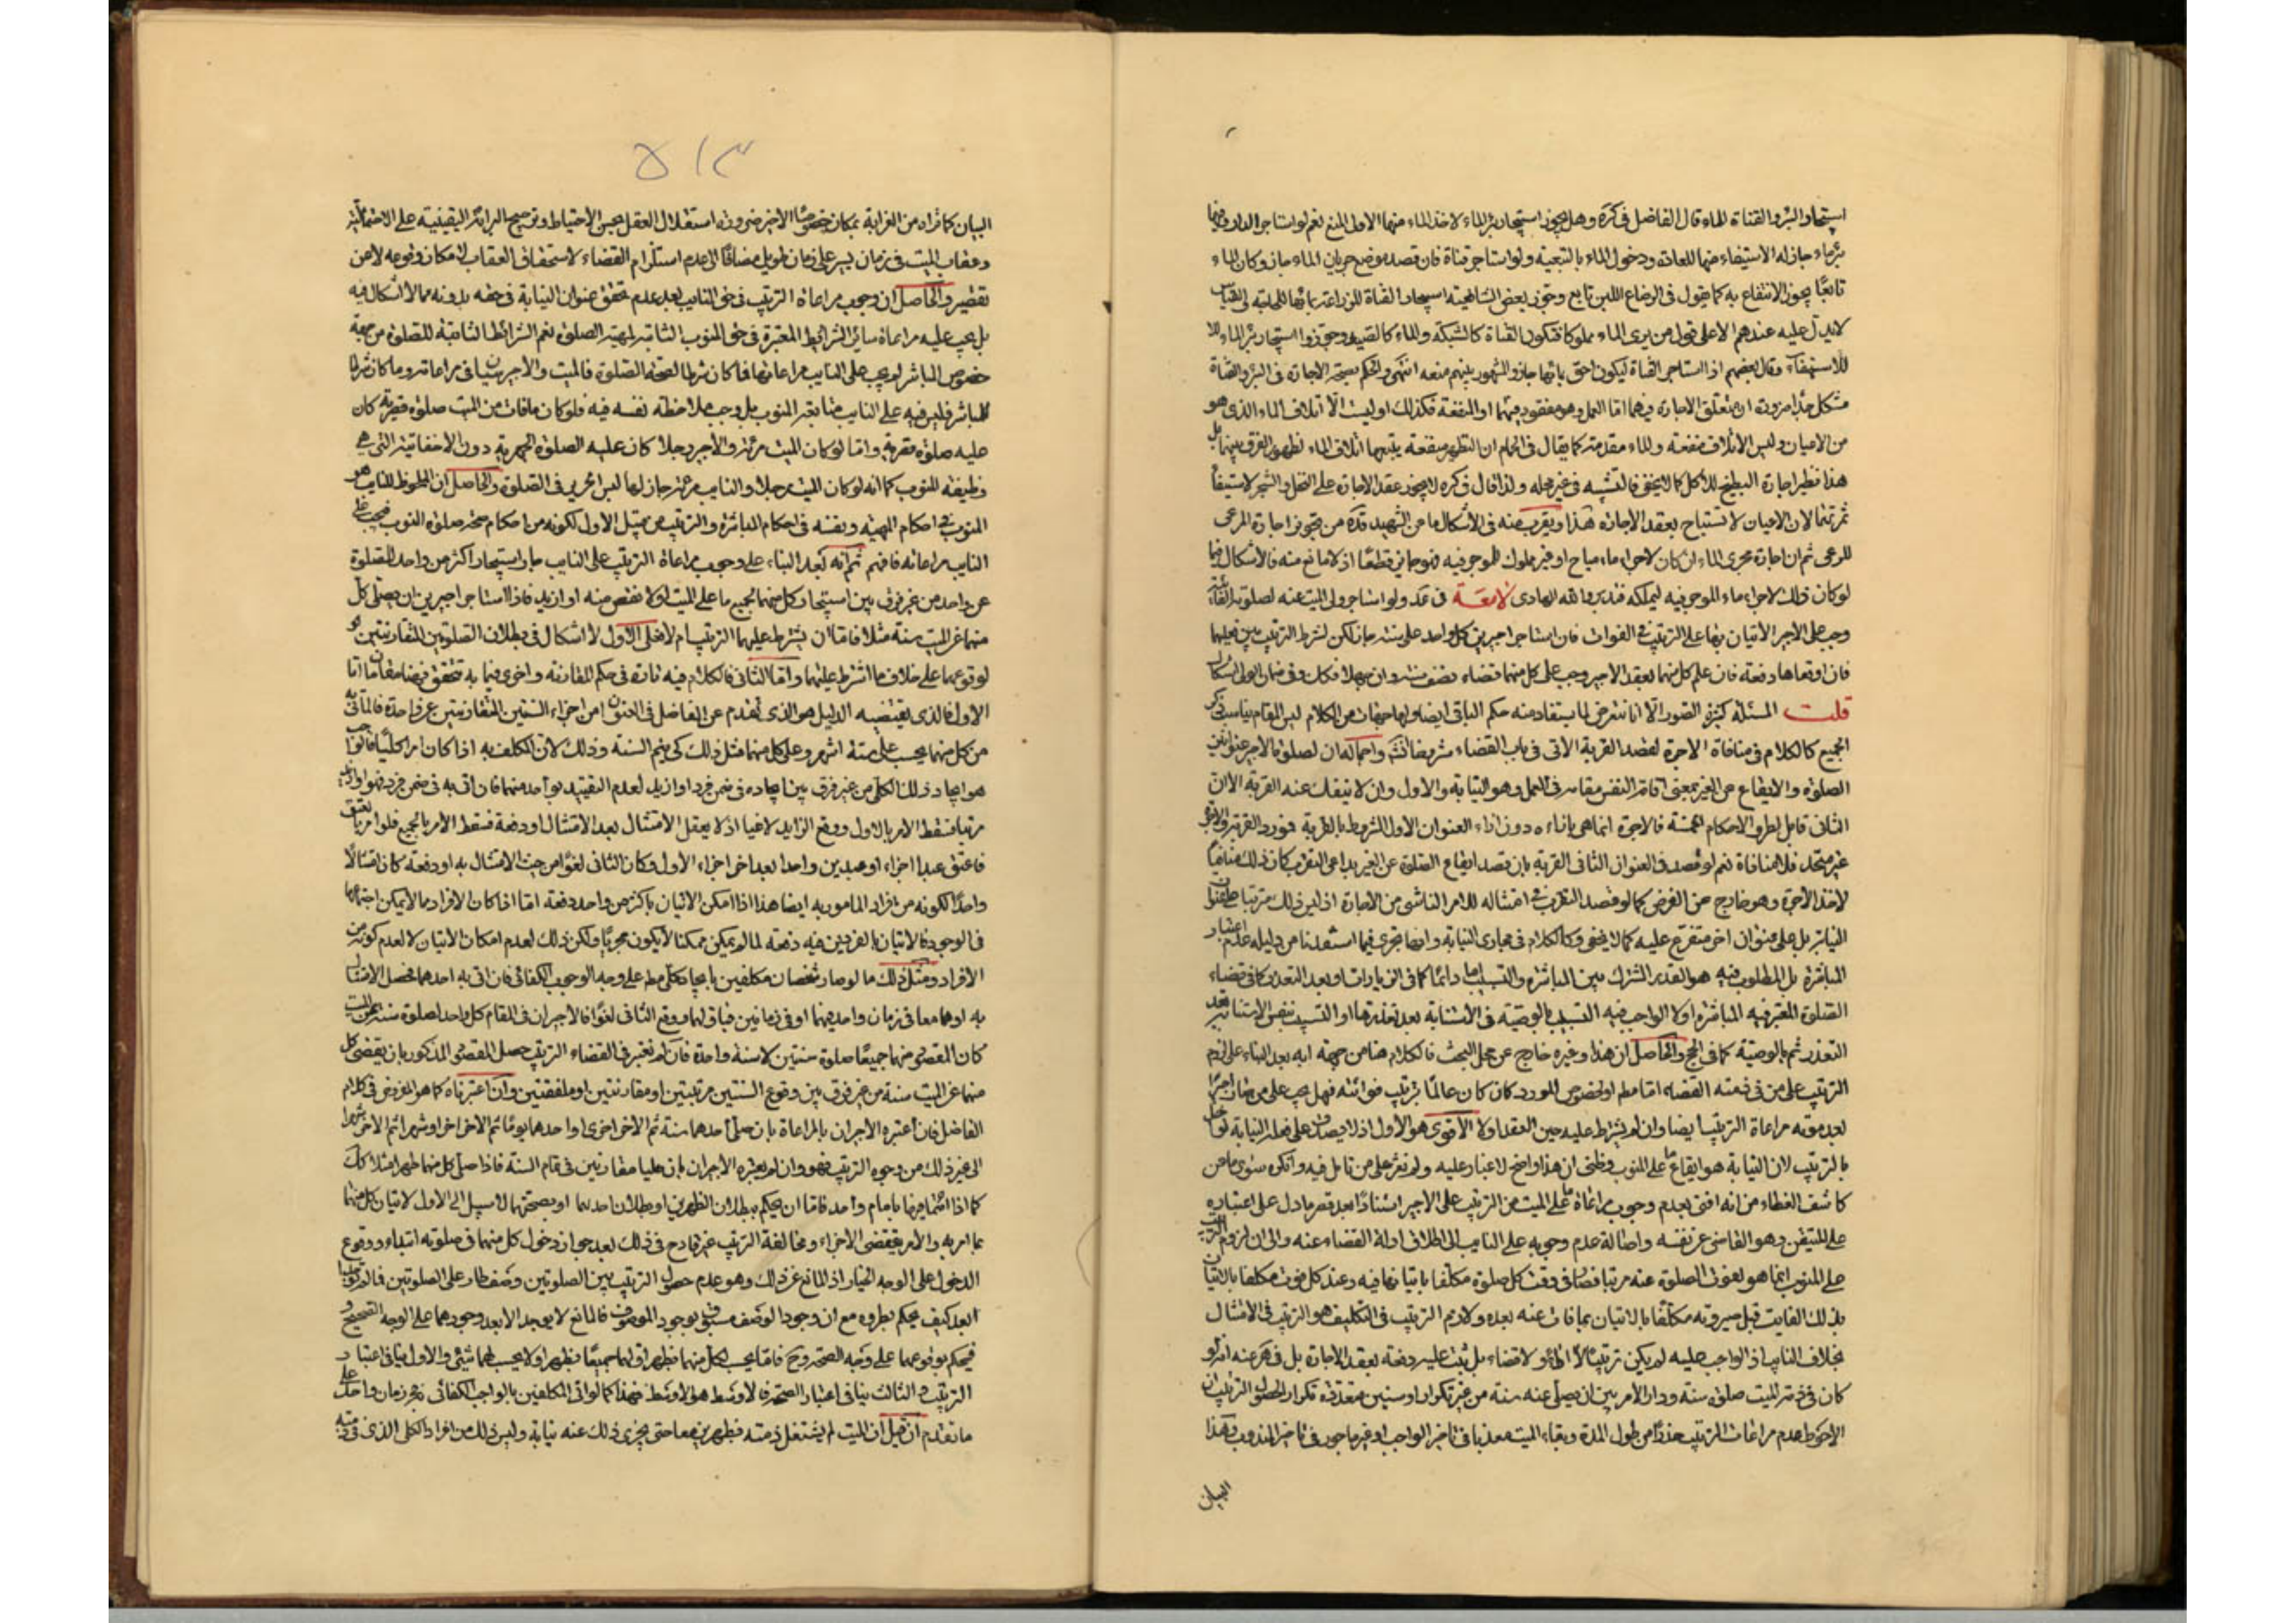 استيجار البئر والقناة للماء قال الفاضل في كره وهل يجوز استيجار بئر الماء لاخذ الماء منها الاولى المنع نعم لو استاجر الدار وفيها
بئر ماء جاز له الاستيفاء منها للعادة ودخول الماء بالتبعية ولو استاجر قناة فان قصد موضع جريان الماء جاز وكان الماء
تابعًا يجوز الانتفاع به كما يقول في الرضاع اللبن تابع وجوز بعض الشافعية استيجار القناة للزراعة بمائها للحاجة
لا يدل عليه عندهم الا على قول من يرى الماء مملوكا فتكون القناة كالشبكة والماء كالصيد وجوزوا استيجار بئر الماء
للاستقاء وقال بعضهم اذا استاجر القناة ليكون احق بمائها جاز والمشهور بينهم منعه انتهى والحكم بصحة الاجارة في البئر والقناة
مشكل جدًا ضرورة ان متعلق الاجارة فيهما اما العمل وهو مفقود فيهما او المنفعة فكذلك اوليست الا اتلاف الماء الذي هو
من الاعيان وليس الاتلاف منفعة والماء مقدمته كما يقال في الحمام ان التطهر منفعة يتبعها اتلاف الماء لظهور الفرق بينهما بل
هذا نظير اجارة البطيخ للاكل كما لا يخفى فالتشبيه في غير محله ولذا قال في كره لا يجوز عقد الاجارة على النخل والشجر لاستيفاء
ثمرتها لان الاعيان لا تستباح بعقد الاجارة هذا ويقرب منه في الاشكال ما عن الشهيد قده من تجويز اجارة المرعى
للرعي ثم ان اجارة مجرى الماء ان كان لاجراء ماء مباح او غير مملوك للموجر فيه فهو جايز قطعًا اذ لا مانع منه فالاشكال فيما
لو كان ذلك لاجراء ماء الموجر فيه ليملكه فتدبر والله الهادي لامعة في عد ولو استاجر ولي الميت عنه لصلوته الفائتة
وجب على الاجير الاتيان بها على الترتيب في الفوات فان استاجر اجيرين كل واحد على سنة جاز لكن لشرط الترتيب بين فعليهما
فان اوقعاها دفعة فان علم كل منهما بعقد الاجير وجب على كل منهما قضاء نصف سنة وان جهلا فكل وفي ضمان الولي اشكال
قلت المسئلة كثيرة الصور الا انا نتعرض لما يستفاد منه حكم الباقي ايضا ولها جهات من الكلام ليس المقام يناسب ذكر
الجميع كالكلام في منافاة الاجرة لقصد القربة الاتي في باب القضاء مشروحا انش واجماله ان لصلوة الاجير عنوانين
الصلوة والايقاع عن الغير بمعنى اقامة النفس مقامه في العمل وهو النيابة والاول وان لا ينفك عنه القربة الا ان
الثاني قابل لطرو الاحكام الخمسة فالاجرة انما هي بازاءه دون اداء العنوان الاول المشروط بالقربة فمورد القربة والاجرة
غير متحد فلا منافاة نعم لو قصد في العنوان الثاني القربة بان يقصد ايقاع الصلوة عن الغير بداعي التقرب كان ذلك منافيًا
لاخذ الاجرة وهو خارج عن الفرض كما لو قصد التقرب في امتثاله للامر الناشي من الاجارة اذ ليس ذلك مترتبا على عنوان
النيابة بل على عنوان اخر متفرع عليه كما لا يخفى وكالكلام في مجاري النيابة وانها تجري فيما استفدنا من دليله عدم اعتبار
المباشرة بل المطلوب فيه هو القدر المشترك بين المباشرة والتسبيب اما دائمًا كما في الزيارات او بعد التعذر كما في قضاء
الصلوة المعتبر فيه المباشرة اولا الواجب فيه التسبيب بالوصية في الاستنابة بعد تعذرها او التسبيب بنفس الاستنابة بعد
التعذر ثم بالوصية كما في الحج والحاصل ان هذا وغيره خارج عن محل البحث فالكلام هنا من جهة انه بعد البناء على لزوم
الترتيب على من في ذمته القضاء اما مطم او لخصوص المورد كان كان عالمًا بترتيب فوائته فهل يجب على من صار اجيرًا
بعد موته مراعاة الترتيب ايضا وان لم يشترط عليه حين العقد اولا الاقوى هو الاول اذ لا يصدق على فعله النيابة لو اخل
بالترتيب لان النيابة هو ايقاع ما على المنوب وظني ان هذا واضح لا غبار عليه ولم نعثر على من تامل فيه وانكره سوى ما عن
كاشف الغطاء من انه افتى بعدم وجوب مراعاة ما على الميت من الترتيب على الاجير استنادًا بعد قصر ما دل على اعتباره
على المتيقن وهو القاضي عن نفسه واصالة عدم وجوبه على النايب الى اطلاق ادلة القضاء عنه والى ان لزوم الترتيب
على المنوب انما هو لفوت الصلوة عنه مرتبا فصار في وقت كل صلوة مكلفا باتيانها فيه وعند كل فوت مكلفا باتيان
بذلك الفايت قبل صيرورته مكلفًا بالاتيان بما فات عنه بعده ولازم الترتيب في التكليف هو الترتيب في الامتثال
بخلاف النايب اذ الواجب عليه لم يكن ترتيبًا لا اداءً ولا قضاء بل ثبت عليه دفعة بعقد الاجارة بل في ... عنه انه لو
كان في ذمة الميت صلوة سنة ودار الامر بين ان يصلى عنه سنة من غير تكرار او سنين متعددة تكرار الحصول الترتيب ان
الاحوط عدم مراعات الترتيب حذرًا من طول المدة وبقاء الميت معذبا في تاخير الواجب او غير ماجور في تاخير المندوب وهذا
البيان
۵۱۳
البيان كما تراه من الغرابة بمكان خصوصًا الاخير ضرورة استقلال العقل بحسن الاحتياط وترجيح البرائة اليقينية على الاحتمالية
وعقاب الميت في زمان يسير على زمان طويل مضافًا الى عدم استلزام القضاء لاستحقاق العقاب لامكان وقوعه لا عن
تقصير والحاصل ان وجوب مراعاة الترتيب في حق النايب بعد عدم تحقق عنوان النيابة في حقه بدونه مما لا اشكال فيه
بل يجب عليه مراعاة سائر الشرايط المعتبرة في حق المنوب الثابتة لمهية الصلوة نعم الشرائط الثابتة للصلوة من جهة
خصوص المباشر لم يجب على النايب مراعاتها فما كان شرطا لصحة الصلوة فالميت والاجير سيان في مراعاته وما كان شرطا
للمباشر فليس فيه على النايب ما يعتبر المنوب بل وجب ملاحظة نفسه فيه فلو كان ما فات من الميت صلوة قصرية كان
عليه صلوة قصرية واما لو كان الميت مرئة والاجير رجلا كان عليه الصلوة الجهرية دون الاخفاتية التي هي
وظيفة المنوب كما انه لو كان الميت رجلا والنايب مرئة جاز لها لبس الحرير في الصلوة والحاصل ان الملحوظ للنايب هو
المنوب في احكام المهية ونفسه في احكام المباشرة والترتيب من قبيل الاول لكونه من احكام صحة صلوة المنوب فيجب على
النايب مراعاته فافهم ثم انه بعد البناء على وجوب مراعاة الترتيب على النايب جاز استيجار اكثر من واحد للصلوة
عن واحد من غير فرق بين استيجار كل منهما لجميع ما على الميت اولا نقص منه او ازيد فاذا استاجر اجيرين ان يصلى كل
منهما عن الميت سنة مثلا فاما ان يشترط عليهما الترتيب ام لا فعلى الاول لا اشكال في بطلان الصلوتين المتقارنتين لو
لوقوعهما على خلاف ما اشترط عليهما واما الثاني فالكلام فيه تارة في حكم المقارنة واخرى فيما به تحقق فهنا مقامان اما
الاول فالذي يقتضيه الدليل هو الذي تقدم عن الفاضل في العنوان من اجزاء السنتين المتقارنتين عن واحدة فالماتي به
من كل منهما يحسب على ستة اشهر وعلى كل منهما مثل ذلك كي يتم السنة وذلك لان المكلف به اذا كان امرا كليًا فالواجب
هو ايجاد ذلك الكلي من غير فرق بين ايجاده في ضمن فرد او ازيد لعدم التقييد بواحد منهما فان اتى به في ضمن فرد فهو او ازيد
مرتبا فسقط الامر بالاول ووقع الزايد لاغيا اذ لا يعقل الامتثال بعد الامتثال او دفعة فسقط الامر بالجميع فلو امر بالعتق
فاعتق عبدا اجزاء او عبدين واحدا بعد اخر اجزاء الاول وكان الثاني لغوًا من حيث الامتثال به او دفعة كان امتثالًا
واحدًا لكونه من افراد المامور به ايضا هذا اذا امكن الاتيان باكثر من واحد دفعة اما اذا كان الافراد مما لا يمكن اجتماعها
في الوجود فالاتيان بالفردين منه دفعة لما لم يمكن ممكنا لا يكون مجزيًا ولكن ذلك لعدم امكان الاتيان لا لعدم كونه من
الافراد ومثل ذلك ما لو صار شخصان مكلفين بايجاد كلي مطم على وجه الوجوب الكفائي فان اتى به احدهما فحصل الامتثال
به او هما معا في زمان واحد فبهما او في زمانين فباولهما ووقع الثاني لغوًا فالاجيران في المقام كل واحد لصلوة سنة عن الميت
كان المقصود منهما جميعًا صلوة سنتين لا سنة واحدة فان لم نعتبر في القضاء الترتيب حصل المقصود المذكور بان يقضى كل
منهما عن الميت سنة من غير فرق بين وقوع السنتين مرتبتين او مقارنتين او ملفقتين وان اعتبرناه كما هو المفروض في كلام
الفاضل فان اعتبره الاجيران بالمراعاة بان صلى احدهما سنة ثم الاخر اخرى او احدهما يومًا ثم الاخر اخر او شهرا ثم الاخر شهرا
الى غير ذلك من وجوه الترتيب فهو وان لم يعتبره الاجيران بان صليا مقارنين في تمام السنة فاذا صلى كل منهما ظهرا مثلا كك
كما اذا ائتما فيها بامام واحد فاما ان يحكم ببطلان الظهرين او بطلان احدهما او بصحتهما لا سبيل الى الاول لاتيان كل منهما
بما امر به والامر يقتضى الاجزاء ومخالفة الترتيب غير قادح في ذلك بعد جواز دخول كل منهما في صلوته ابتداء ووقوع
الدخول على الوجه المختار اذ المانع عن ذلك وهو عدم حصول الترتيب بين الصلوتين وصف طار على الصلوتين
بعد كيف يحكم بطروه مع ان وجود الوصف مسبوق بوجود الموصوف فالمانع لا يوجد الا بعد وجودهما على الوجه الصحيح و
فيحكم بوقوعهما على وجه الصحة وح فاما يحسب لكل منهما ظهر او لهما جميعًا ظهر او لا يحسب لهما شيئ والاول ينافي اعتبار
الترتيب والثالث ينافي اعتبار الصحة فالاوسط هو الاوسط فهذا كما لو اتى المكلفين بالواجب الكفائي في زمان واحد على
ما تقدم ان قيل ان الميت لم يشتغل ذمته بظهرين معا حتى يجزى ذلك عنه نيابة وليس ذلك من افراد الكلي الذي في ذمته